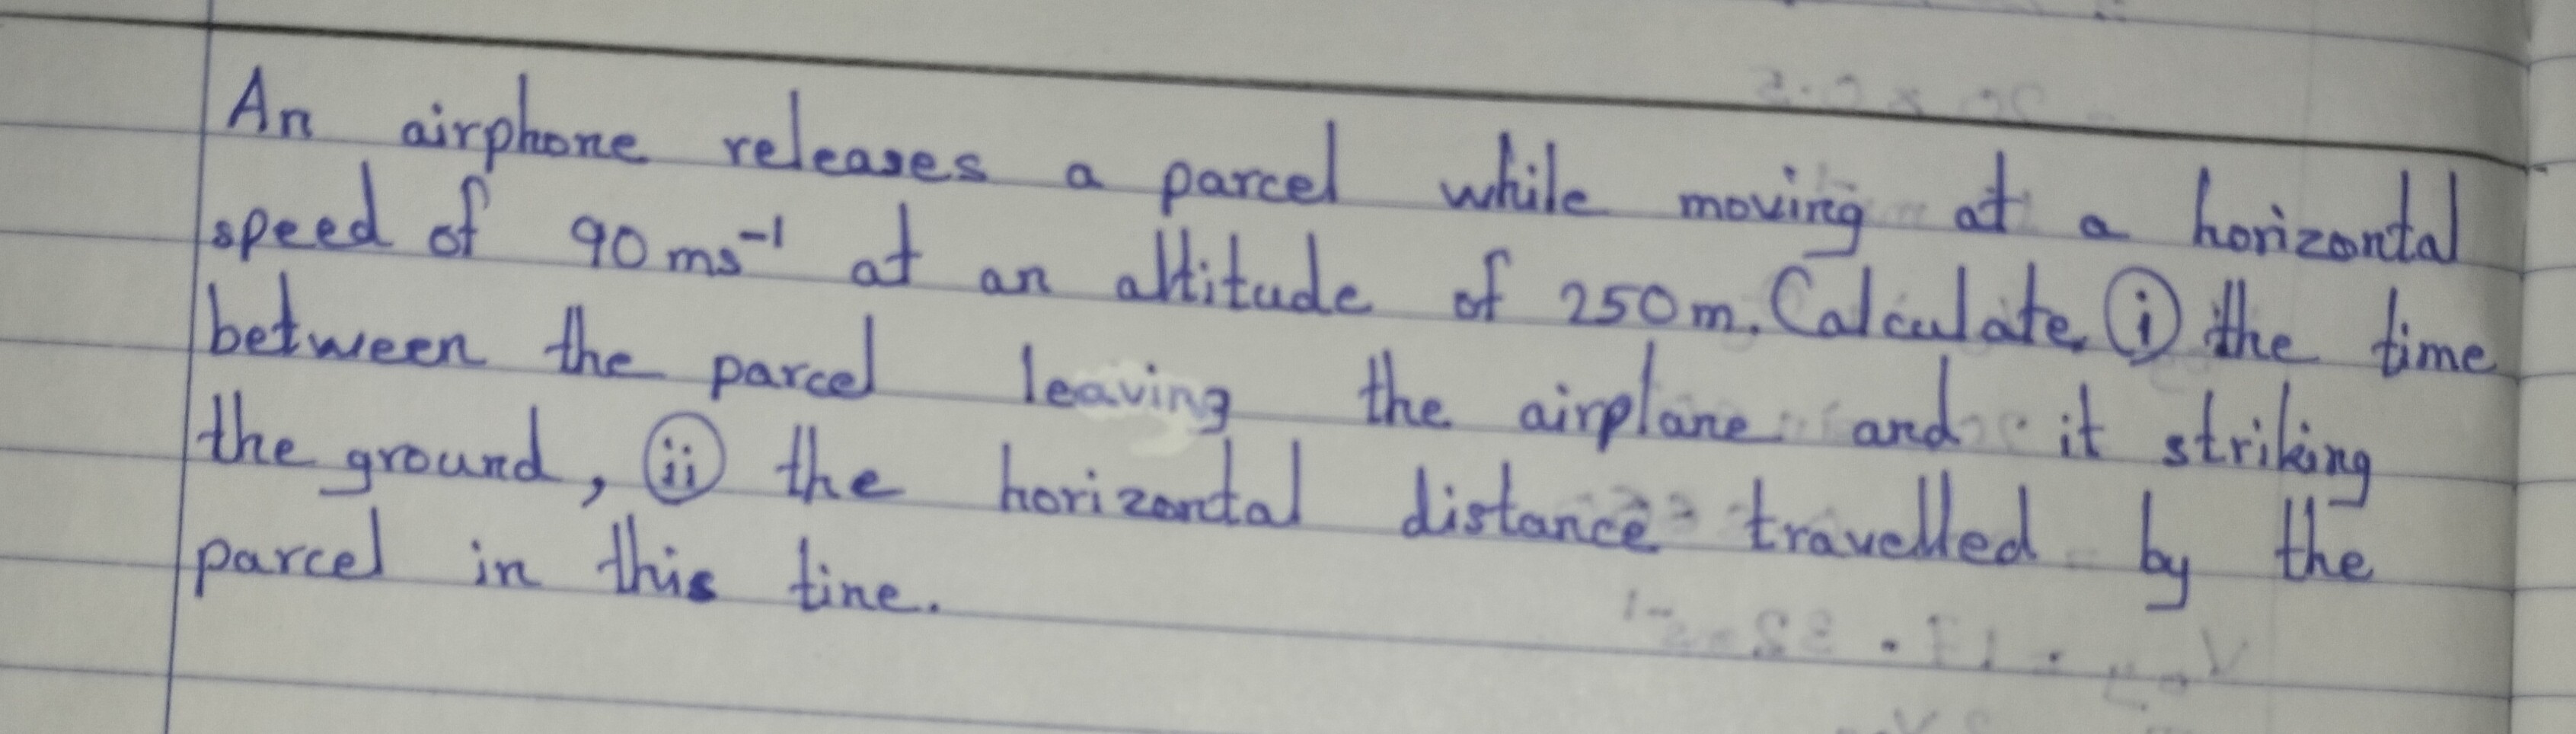 An airphone releases a parcel while moving at a horizontal
speed of 90 ms⁻¹ at an altitude of 250m. Calculate ⓘ the time
between the parcel leaving the airplane and it striking
the ground, ⓘⓘ the horizontal distance travelled by the
parcel in this tine.